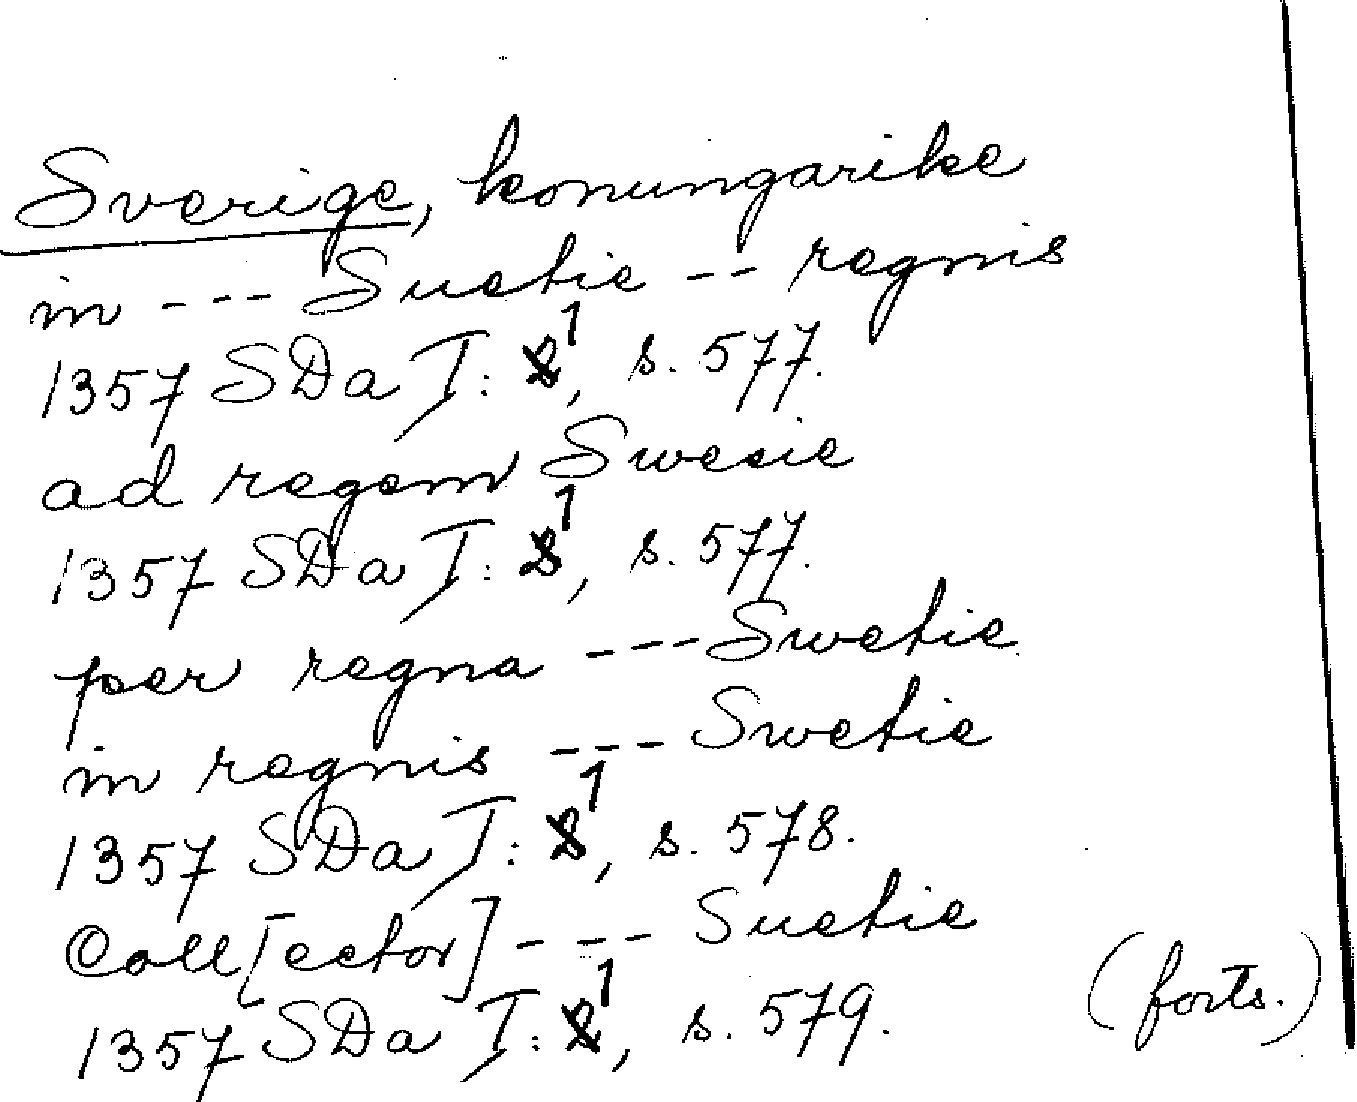 Sverige, konungarike
in --- Suetie -- regnis
1357 SDa I: 1, s. 577.
ad regem Swecie
1357 SDa I: 1, s. 577.
per regna --- Swetie
in regnis --- Swetie
1357 SDa I: 1, s. 578.
Coll[ector] --- Suetie
1357 SDa I: 1, s. 579.
(forts.)